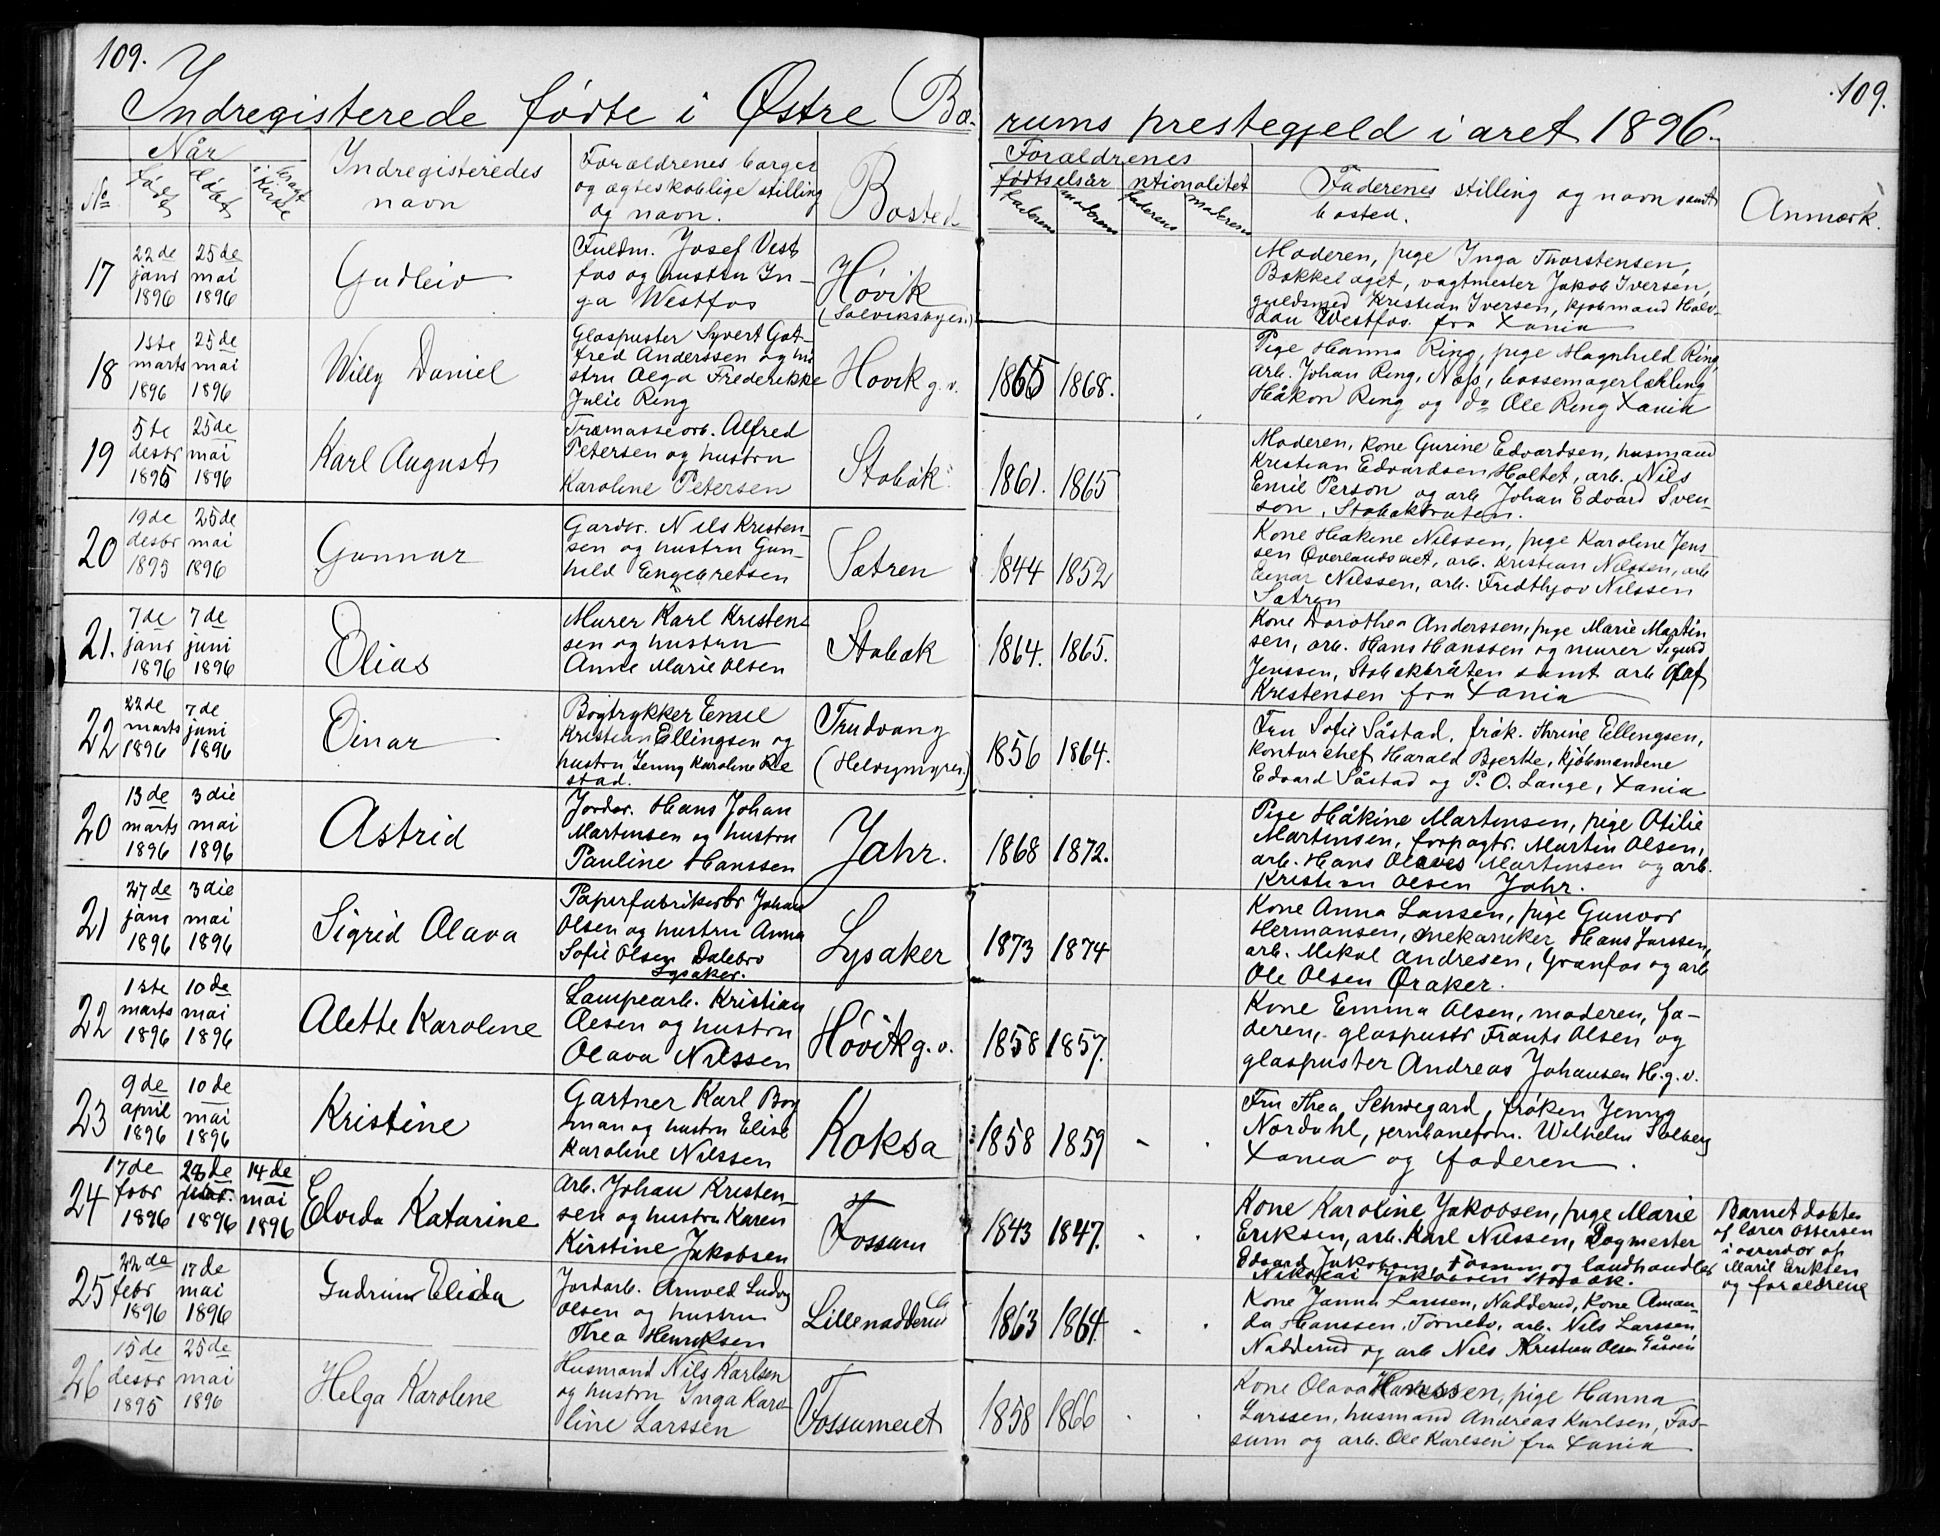 109.
109.
Indregisterede fødte i Østre Bæ-
rums prestegjeld i aret 1896.
No
Når
født
døbt
bragt i Kirke
Indregisteredes navn
Forældrenes borger
og ægteskablige stilling
og navn.
Bosted
Forældrenes
fødtselsår
ntionalitet
faderens
moderens
faderens
moderens
Faderenes stilling og navn samt
bosted.
Anmærk.
17
22de janr 1896
25de mai 1896
Gudleiv
Fuldm. Josef Vest
fos og hustru In-
ga Westfos
Høvik
(Solviksbyen)
Moderen, pige Inga Thorstensen,
Bakkelaget, vagtmester Jakob Iversen,
guldsmed Kristian Iversen, kjøbmand Halv-
dan Westfos fra Xania
18
1ste marts 1896
25de mai 1896
Willy Daniel
Glaspuster Syvert Got-
fred Anderssen og hu
stru Olga Frederikke
Julie Ring
Høvik g. v.
1865
1868.
Pige Hanna Ring, pige Magnhild Ring,
arb. Johan Ring, Næs, bøssemagerlærling
Håkon Ring og do Ole Ring Xania
19
5te desbr 1895
25de mai 1896
Karl August
Træmassearb. Alfred
Petersen og hustru
Karoline Petersen
Stabæk
1861.
1865
Moderen, kone Gurine Edvardsen, husmand
Kristian Edvardsen Holtet, arb. Nils
Emil Person og arb Johan Edvard Sven-
son, Stabækbråten.
20
19de desbr 1895
25de mai 1896
Gunnar
Gardbr. Nils Kristen-
sen og hustru Gun-
hild Engebretsen
Sætren
1844
1852
Kone Hakine Nilssen, pige Karoline Jens-
sen Øverlandsøiet, arb. Kristian Nilssen, arb
Einar Nilssen, arb. Fredthjov Nilssen
Sætren
21.
7de janr 1896
7de juni 1896
Elias
Murer Karl Kristen-
sen og hustru
Anne Marie Olsen
Stabæk
1864.
1865.
Kone Dorothea Anderssen, pige Marie Martin
sen, arb. Hans Hanssen og murer Sigurd
Jenssen, Stabækbråten samt arb Olaf
Kristensen fra Xania
22
22de marts 1896
7de juni 1896
Einar
Bogtrykker Emil
Kristian Ellingsen og
hustru Jenny Karoline Re
stad.
Trudvang
(Helvigmyren.)
1856
1864.
Fru Sofie Såstad, frøk. Thrine Ellingsen,
kontorchef Harald Bjerke, kjøbmændene
Edvard Såstad og P. O. Lange, Xania
20
13de marts 1896
3die mai 1896
Astrid
Jordbr. Hans Johan
Martinsen og hustru
Pauline Hanssen
Jahr.
1868
1872.
Pige Håkine Martensen, pige Otilie
Martensen, forpagtr. Martin Olsen,
arb. Hans Olaves Martensen og arb.
Kristian Olsen Jahr.
21
27de janr 1896
3die mai 1896
Sigrid Olava
Paperfabrikarbr Johan
Olsen og hustru Anna
Sofie Olsen Dalebro
Lysaker.
Lysaker
1873
1874
Kone Anna Larsen, pige Gunvor
Hermansen, mekaniker Hans Larssen,
arb. Mikal Andresen, Granfos og arb
Ole Olsen Øraker.
22
1ste marts 1896
10de mai 1896
Alette Karoline
Lampearb. Kristian
Olsen og hustru
Olava Nilssen
Høvik g. v.
1858
1857.
Kone Emma Olsen, moderen, fa-
deren, glaspustr Frants Olsen og
glaspuster Andreas Johansen H. g. v.
23
9de april 1896
10de mai 1896
Kristine
Gartner Karl Boy
man og hustru Elise
Karoline Nilssen
Koksa
1858
1859
Fru Thea Schwegard, frøken Jenny
Nordahl, jernbanefm. Wilhelm Solberg
Xania og faderen.
24
17de febr 1896
28de febr. 1896
14de mai 1896
Elvida Katarine
Arb. Johan Kristen-
sen og hustru Karen
Kirstine Jakobsen
Fossum
1843
1847.
Kone Karoline Jakobsen, pige Marie
Eriksen, arb. Karl Nilssen, Dogmester
Edvard Jakobsen Fossum og landhandler
Nikolai Jakobsen Stabæk.
Barnet døbtes
af lærer Ottersen
i overvær af
Marie Eriksen
og forældrene
25
22de febr 1896
17de mai 1896
Gudrun Elida
Jordarb. Arnold Ludvig
Olsen og hustru
Thea Henriksen
Lillenadderud
1863
1864.
Kone Janna Larssen, Nadderud, kone Aman-
da Hanssen, Tornebo, arb. Nils Larssen
Nadderud og arb Nils Kristian Olsen Gåsøen
26
15de desbr 1895
25de mai 1896
Helga Karoline
Husmand Nils Karlsen
og hustru Inga Karo-
line Larssen
Fossumeiet
1858
1866
Kone Olava Hanssen, pige Hanna
Larssen, husmand Andreas Karlsen, Fos-
sum og arb. Ole Karlsen fra Xania